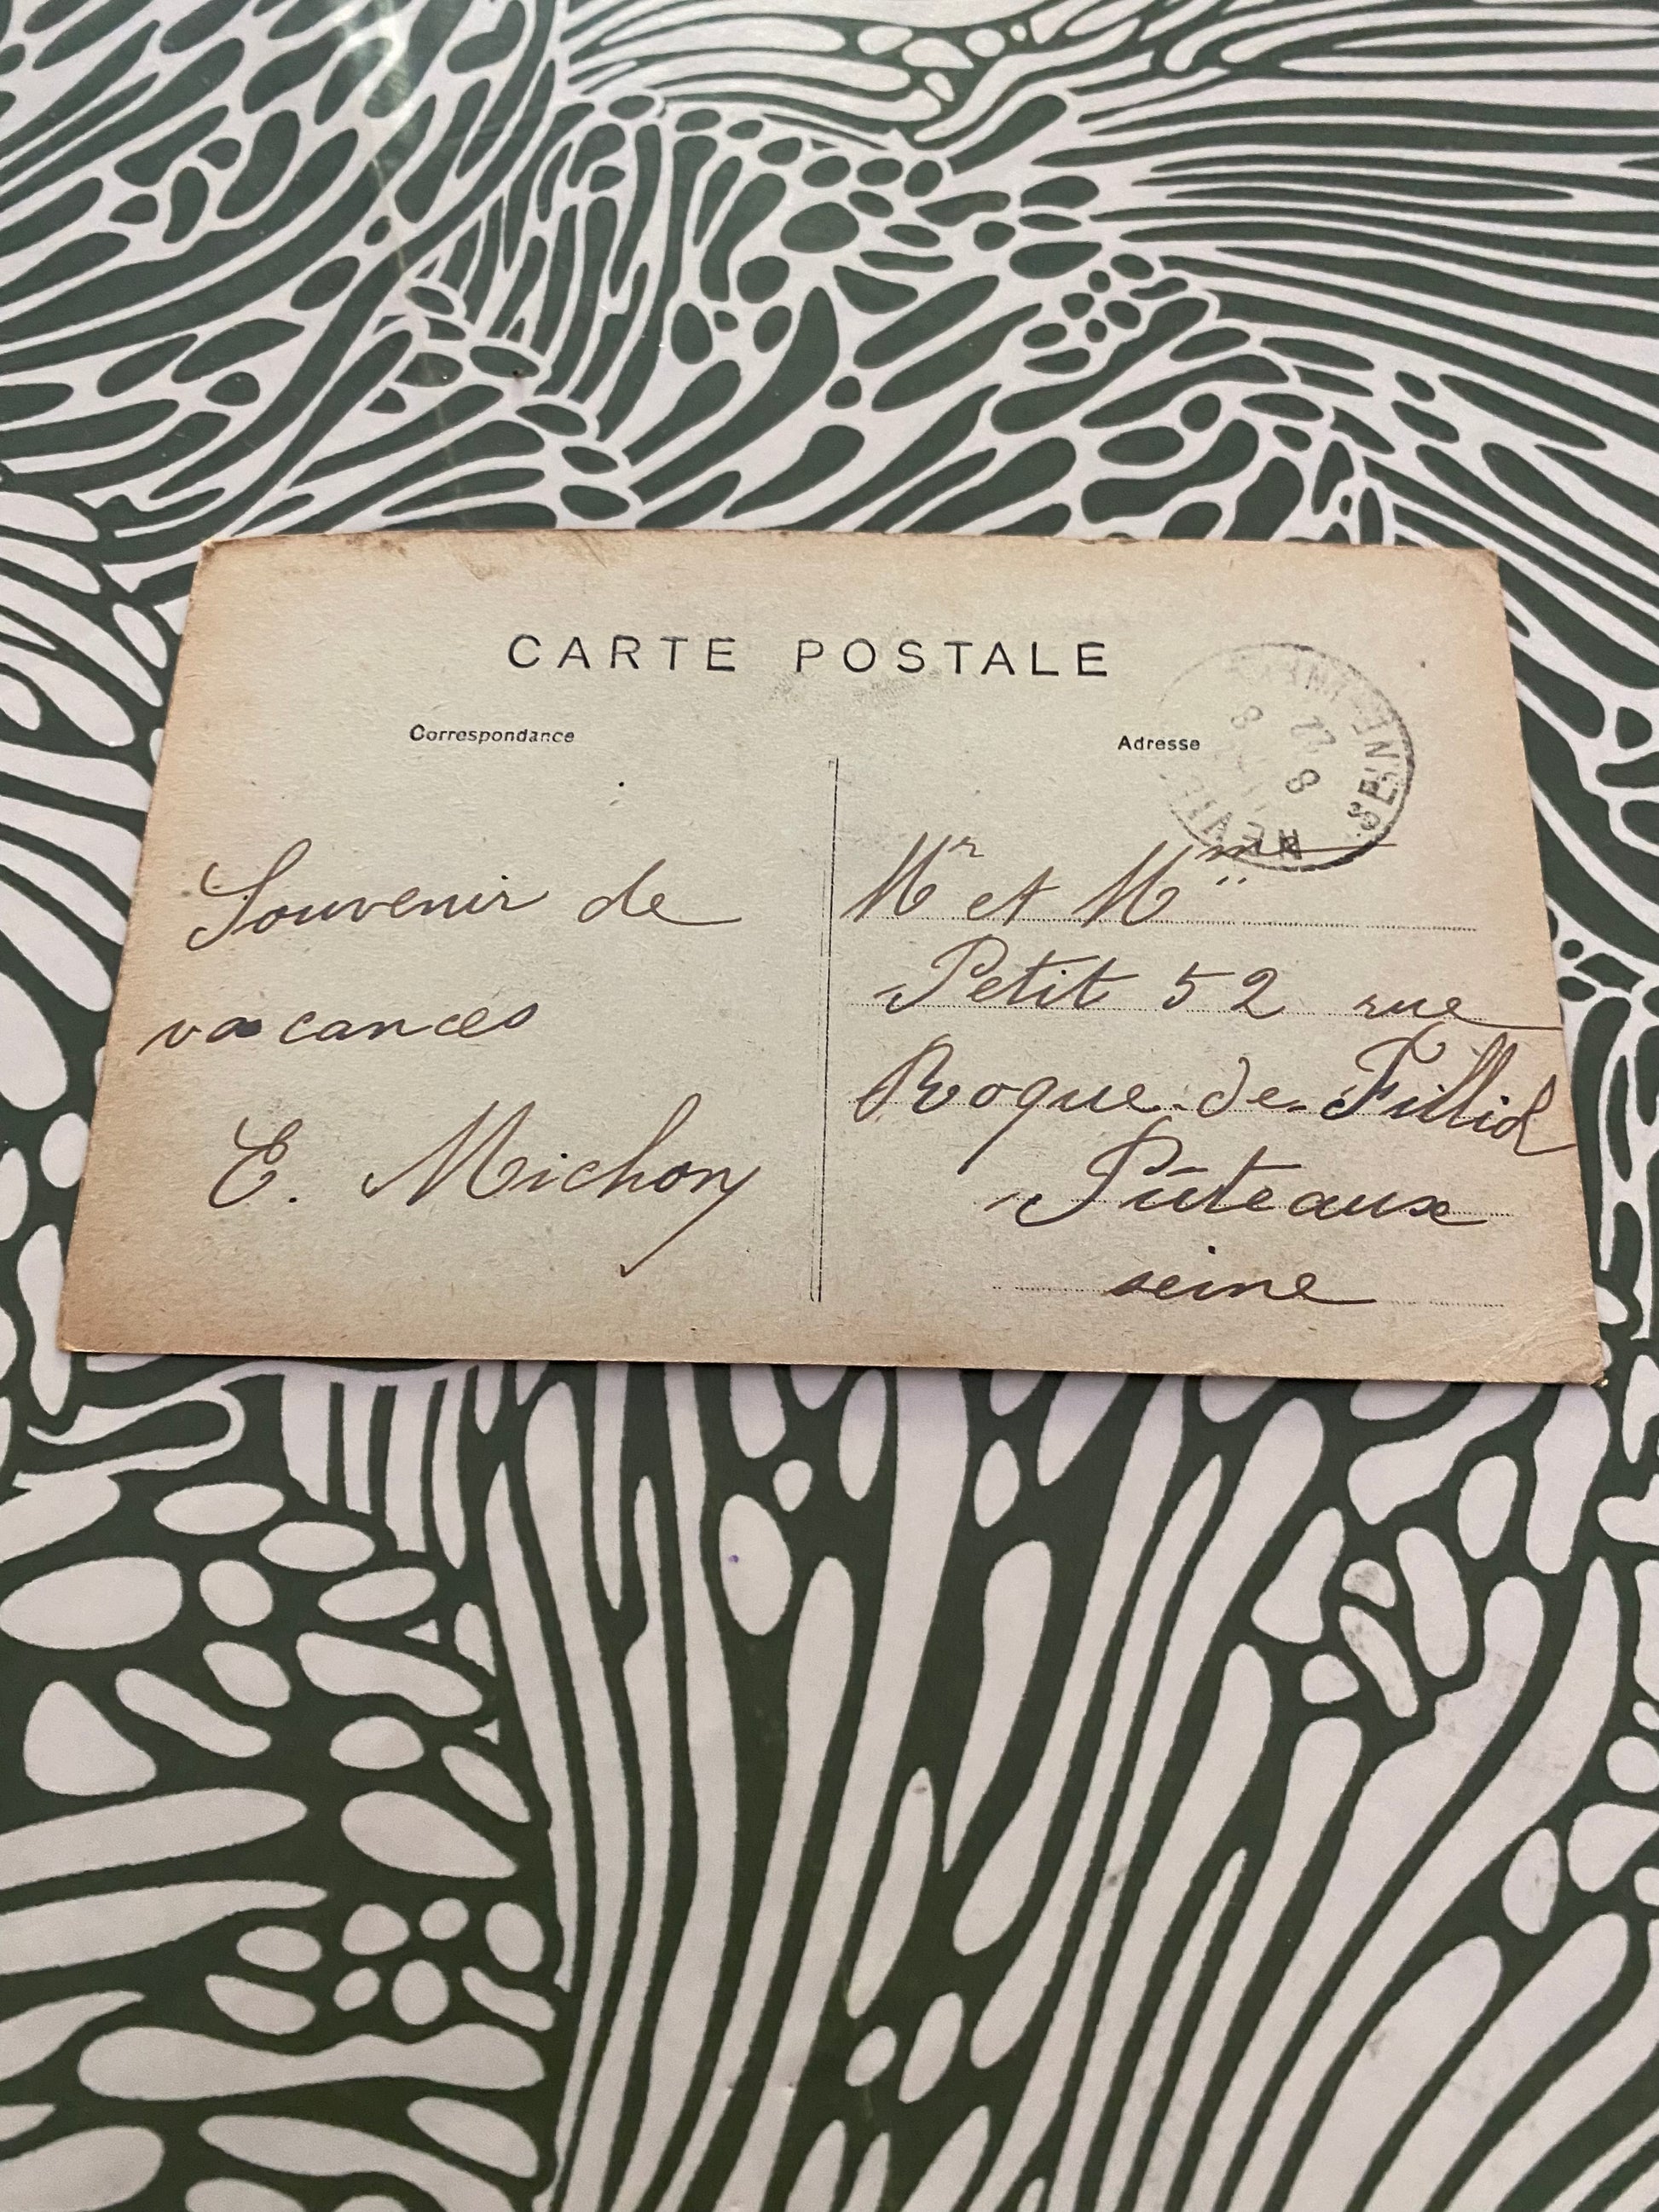 CARTE POSTALE
Correspondance
Adresse
Souvenir de
vacances
E. Michon
Mr et Mme
Petit 52 rue
Roque-de-Filliol
Pûteaux
seine